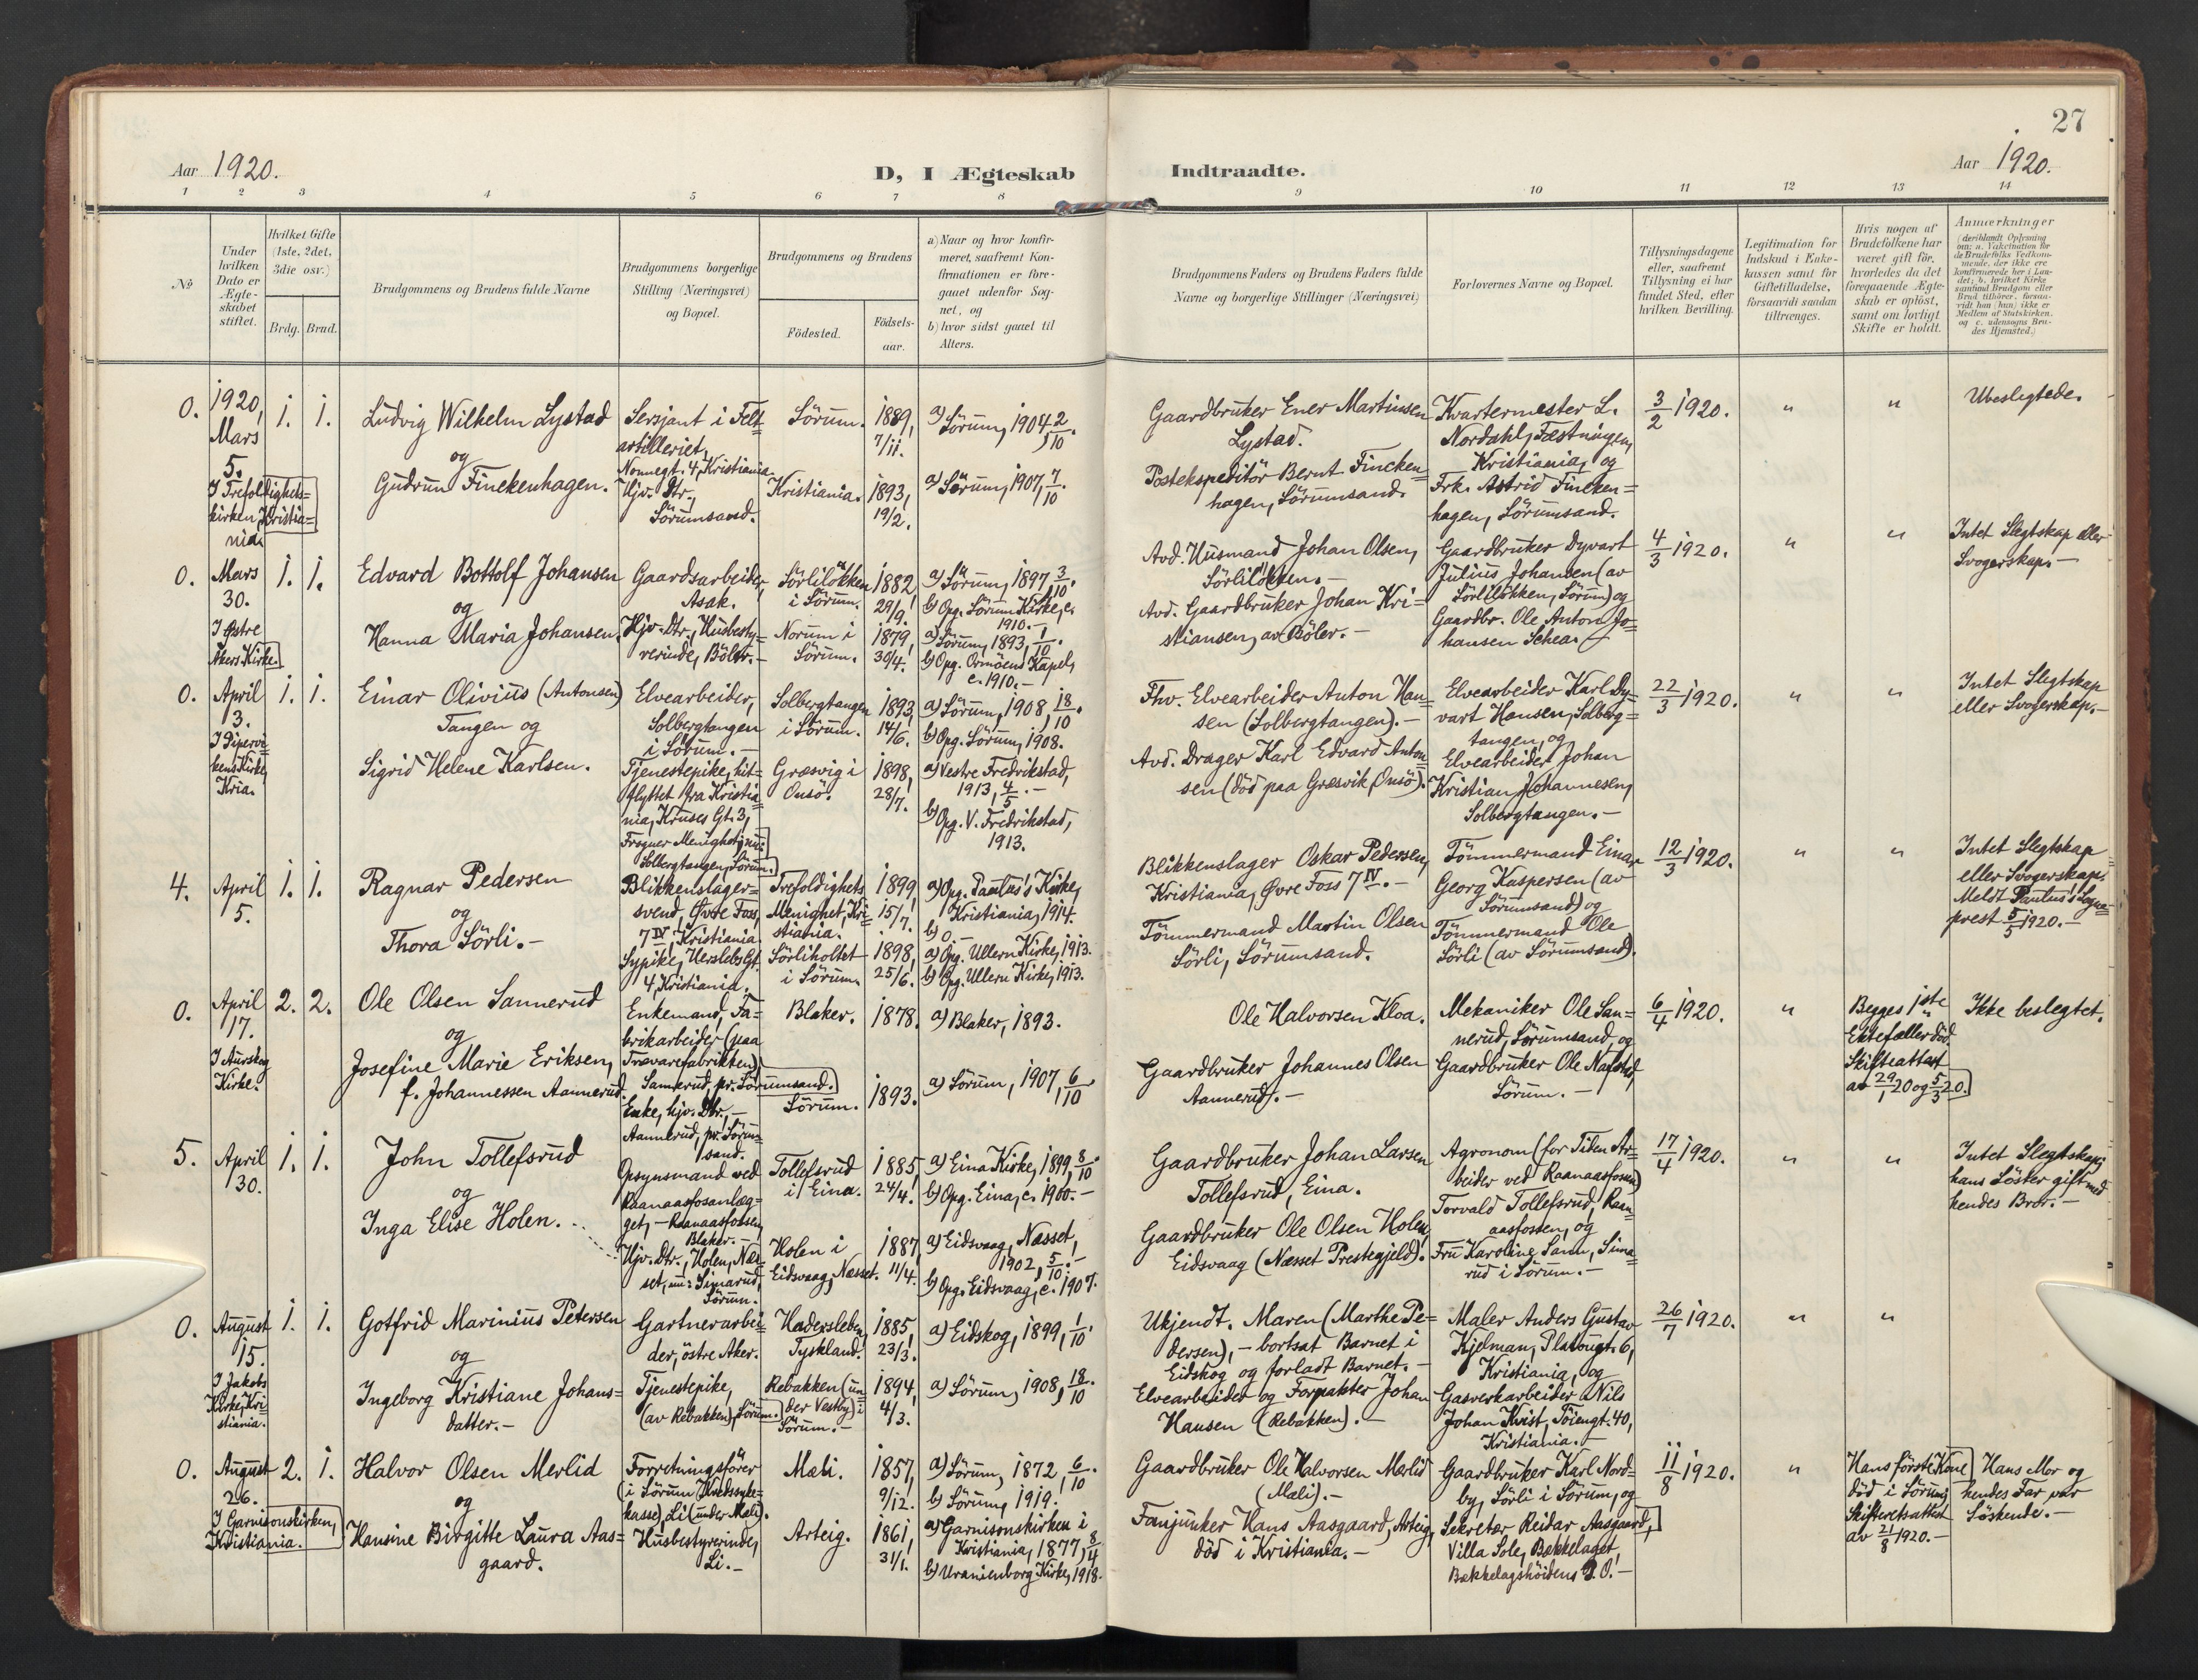 27
Aar 1920.
D, I Ægteskab
Indtraadte.
Aar 1920.
1 2 3 4 5 6 7 8 9 10 11 12 13 14
№
Under
hvilken
Dato er
Ægte-
skabet
stiftet.
Hvilket Gifte
(1ste, 2det,
3die osv.)
Brdg. Brud.
Brudgommens og Brudens fulde Navne
Brudgommens borgerlige
Stilling (Næringsvei)
og Bopæl.
Brudgommens og Brudens
Födested.
Födsels-
aar.
a) Naar og hvor konfir-
meret, saafremt Kon-
firmationen er fore-
gaaet udenfor Sog-
net, og
b) hvor sidst gaaet til
Alters.
Brudgommens Faders og Brudens Faders fulde
Navne og borgerlige Stillinger (Næringsvei)
Forlovernes Navne og Bopæl.
Tillysningsdagene
eller, saafremt
Tillysning ei har
fundet Sted, efter
hvilken Bevilling.
Legitimation for
Indskud i Enke-
kassen samt for
Giftetilladelse,
forsaavidt saadan
tiltrænges.
Hvis nogen af
Brudefolkene har
været gift för,
hvorledes da det
foregaaende Ægte-
skab er oplöst,
samt om lovligt
Skifte er holdt.
Anmærkninger
(deriblandt Oplysning
om: a. Vakcination for
de Brudefolks Vedkom-
mende, der ikke ere
konfirmerede her i Lan-
det; b. hvilket Kirke
samfund Brudgom eller
Brud tilhörer, forsaa-
vidt han (hun) ikke er
Medlem af Statskirken,
og c. udensogns Bru-
des Hjemsted.)
0.
1920,
Mars
5.
I Trefoldighets=
kirken, Kristia=
nia.
1. 1.
Ludvig Wilhelm Lystad
og
Gudrun Finckenhagen.
Sersjant i Felt=
artilleriet,
Nonnegt. 4, Kristiania.
Hjv. Dtr.,
Sörumsand.
Sörum.
Kristiania.
1889,
7/11.
1893,
19/2.
a) Sörum, 1904, 2/10.
a) Sörum, 1907, 7/10.
Gaardbruker Ener Martinsen
Lystad.
Postekspeditör Bernt Fincken=
hagen, Sörumsand.
Kvartermester L.
Nordahl, Fæstningen,
Kristiania, og
Frk. Astrid Fincken=
hagen, Sörumsand.
3/2 1920.
" "
Ubeslegtede.
0.
Mars
30.
I Østre
Akers Kirke.
1. 1.
Edvard Bottolf Johansen
og
Hanna Maria Johansen
Gaardsarbeider,
Asak.
Hjv. Dtr., Husbesty=
rerinde, Böler.-
Sörlilökken
i Sörum.
Norum i
Sörum.
1882,
29/9.
1879,
30/4.
a) Sörum, 1897, 3/10.
b) Opg. Sörum Kirke, c.
1910.-
a) Sörum, 1893, 1/10.
b) Opg. Ormöens Kapel,
c. 1910.-
Avd. Husmand Johan Olsen,
Sörlilökken.-
Avd. Gaardbruker Johan Kri=
stiansen, av Böler.-
Gaardbruker Dyvart
Julius Johansen (av
Sörlilökken, Sörum) og
Gaardbr. Ole Anton Jo=
hansen Schea.-
4/3 1920.
" "
Intet Slegtskap eller
Svogerskap.-
0.
April
3.
I Pipervi=
kens Kirke,
Kria.
1. 1.
Einar Olivius (Antonsen)
Tangen og
Sigrid Helene Karlsen.
Elvearbeider,
Solbergtangen
i Sörum.-
Tjenestepike, hit=
flyttet fra Kristia=
nia, Kruses Gt. 3,
Frogner Menighet, nu:
Solbergtangen, Sörum.
Solbergtangen
i Sörum.
Græsvig i
Onsö.
1893,
14/6.
1898,
28/7.
a) Sörum, 1908, 18/10.
b) Opg. Sörum, 1908.
a) Vestre Fredrikstad,
1913, 4/5.-
b) Opg. V. Fredrikstad,
1913.
Fhv. Elvearbeider Anton Han=
sen (Solbergtangen).-
Avd. Drager Karl Edvard Anton=
sen (död paa Græsvik, Onsö).
Elvearbeider Karl Dy=
vart Hansen, Solberg=
tangen, og
Elvearbeider Johan
Kristian Johannesen,
Solbergtangen.-
22/3 1920.
" "
Intet Slegtskap
eller Svogerskap.-
4.
April
5.
1. 1.
Ragnar Pedersen
og
Thora Sörli.-
Blikkenslager=
svend, Øvre Foss
7 IV, Kristiania.
Sypike, Herslebs Gt.
4, Kristiania.
Trefoldighets
Menighet, Kri=
stiania.
Sörliholtet
i Sörum.
1899,
15/7.
1898,
25/6.
a) Opg. Paulus's Kirke,
Kristiania, 1914.
b) 0 -
a) Opg. Ullern Kirke, 1913.
b) Opg. Ullern Kirke, 1913.
Blikkenslager Oskar Pedersen,
Kristiania, Øvre Foss 7 IV.-
Tömmermand Martin Olsen
Sörli, Sörumsand.
Tömmermand Einar
Georg Kaspersen (av
Sörumsand) og
Tömmermand Ole
Sörli (av Sörumsand).
12/3 1920.
" "
Intet Slegtskap
eller Svogerskap.
Meldt Paulus's Sogne=
prest 5/5 1920.-
0.
April
17.
I Aurskog
Kirke.
2. 2.
Ole Olsen Sannerud
og
Josefine Marie Eriksen,
f. Johannessen Aannerud.
Enkemand, Fa=
brikarbeider (paa
Trævarefabrikken),
Sannerud, pr. Sörumsand.
Enke, hjv. Dtr.,-
Aannerud, pr. Sörum=
sand.
Blaker.
Sörum.
1878.
1893.
a) Blaker, 1893.
a) Sörum, 1907, 6/10
Ole Halvorsen Kloa.
Gaardbruker Johannes Olsen
Aannerud.-
Mekaniker Ole San=
nerud, Sörumsand, og
Gaardbruker Ole Nafstad,
Sörum.-
6/4 1920.
"
Begges 1ste
Ektefæller död.
Skifteattest
av 29/1 20 og 5/3 20.
Ikke beslegtet.
5.
April
30.
1. 1.
John Tollefsrud
og
Inga Elise Holen.
Opsynsmand ved
Raanaasfosanlæg=
get,- Raanaasfossen,
Blaker.-
Hjv. Dtr., Holen, Næs=
set, nu: Simarud,
Sörum.
Tollefsrud
i Eina.
Holen i
Eidsvaag, Næsset.
1885,
24/4.
1887,
11/4.
a) Eina Kirke, 1899, 8/10.
b) Opg. Eina, c. 1900.-
a) Eidsvaag, Næsset,
1902, 5/10.-
b) Opg. Eidsvaag, c. 1907.
Gaardbruker Johan Larsen
Tollefsrud, Eina.
Gaardbruker Ole Olsen Holen,
Eidsvaag (Næsset Prestegjeld).
Agronom (for Tiden Ar=
beider ved Raanaasfossen)
Torvald Tollefsrud, Raan=
aasfossen, og
Fru Karoline Sann, Sima=
rud i Sörum.-
17/4 1920.
" "
Intet Slegtskap;
hans Söster gift med
hendes Bror.-
0.
August
15.
I Jakobs
Kirke, Kri=
stiania.
1. 1.
Gotfrid Marinius Petersen
og
Ingeborg Kristiane Johans=
datter.-
Gartnerarbei=
der, östre Aker.
Tjenestepike,
(av Rebakken), Sörum.
Hadersleben,
Tyskland.
Rebakken (un=
der Vestby) i
Sörum.-
1885,
23/3.
1894,
4/3.
a) Eidskog, 1899, 1/10.
a) Sörum, 1908, 18/10
Ukjendt. Maren (Marthe Pe=
dersen),- bortsat Barnet i
Eidskog og forladt Barnet.-
Elvearbeider og Forpakter Johan
Hansen (Rebakken).-
Maler Anders Gustav
Kjelman, Platougt. 6,
Kristiania, og
Gasverkarbeider Nils
Johan Kvist, Töiengt. 40,
Kristiania.-
26/7 1920.
" "
0.
August
26.
I Garnisonskirken,
Kristiania.
2. 1.
Halvor Olsen Merlid
og
Hansine Birgitte Laura Aas=
gaard.
Forretningsförer
(i Sörum Kredssyke=
kasse), Li (under Mæli).
Husbestyrerinde,
Li.-
Mæli.
Arteig.
1857,
9/12.
1861,
31/1.
a) Sörum, 1872, 6/10.
b) Sörum, 1919.
a) Garnisonskirken i
Kristiania, 1877, 8/4
b) Uranienborg Kirke, 1918.
Gaardbruker Ole Halvorsen Merlid
(Mæli).-
Fanjunker Hans Aasgaard, Arteig,
död i Kristiania.-
Gaardbruker Karl Nord=
by, Sörli i Sörum, og
Sekretær Reidar Aasgaard,
Villa Sole, Bækkelaget,
Bækkelagshöidens P.O.-
11/8 1920.
"
Hans förste Kone
död i Sörum,
Skifteretsattest
av 21/8 1920.-
Hans Mor og
hendes Far var
Söskende.-